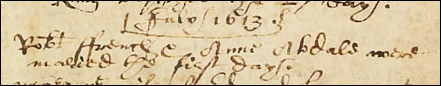 July 1613
Robt ffrench & Anne Abdale were
maried the first daye.